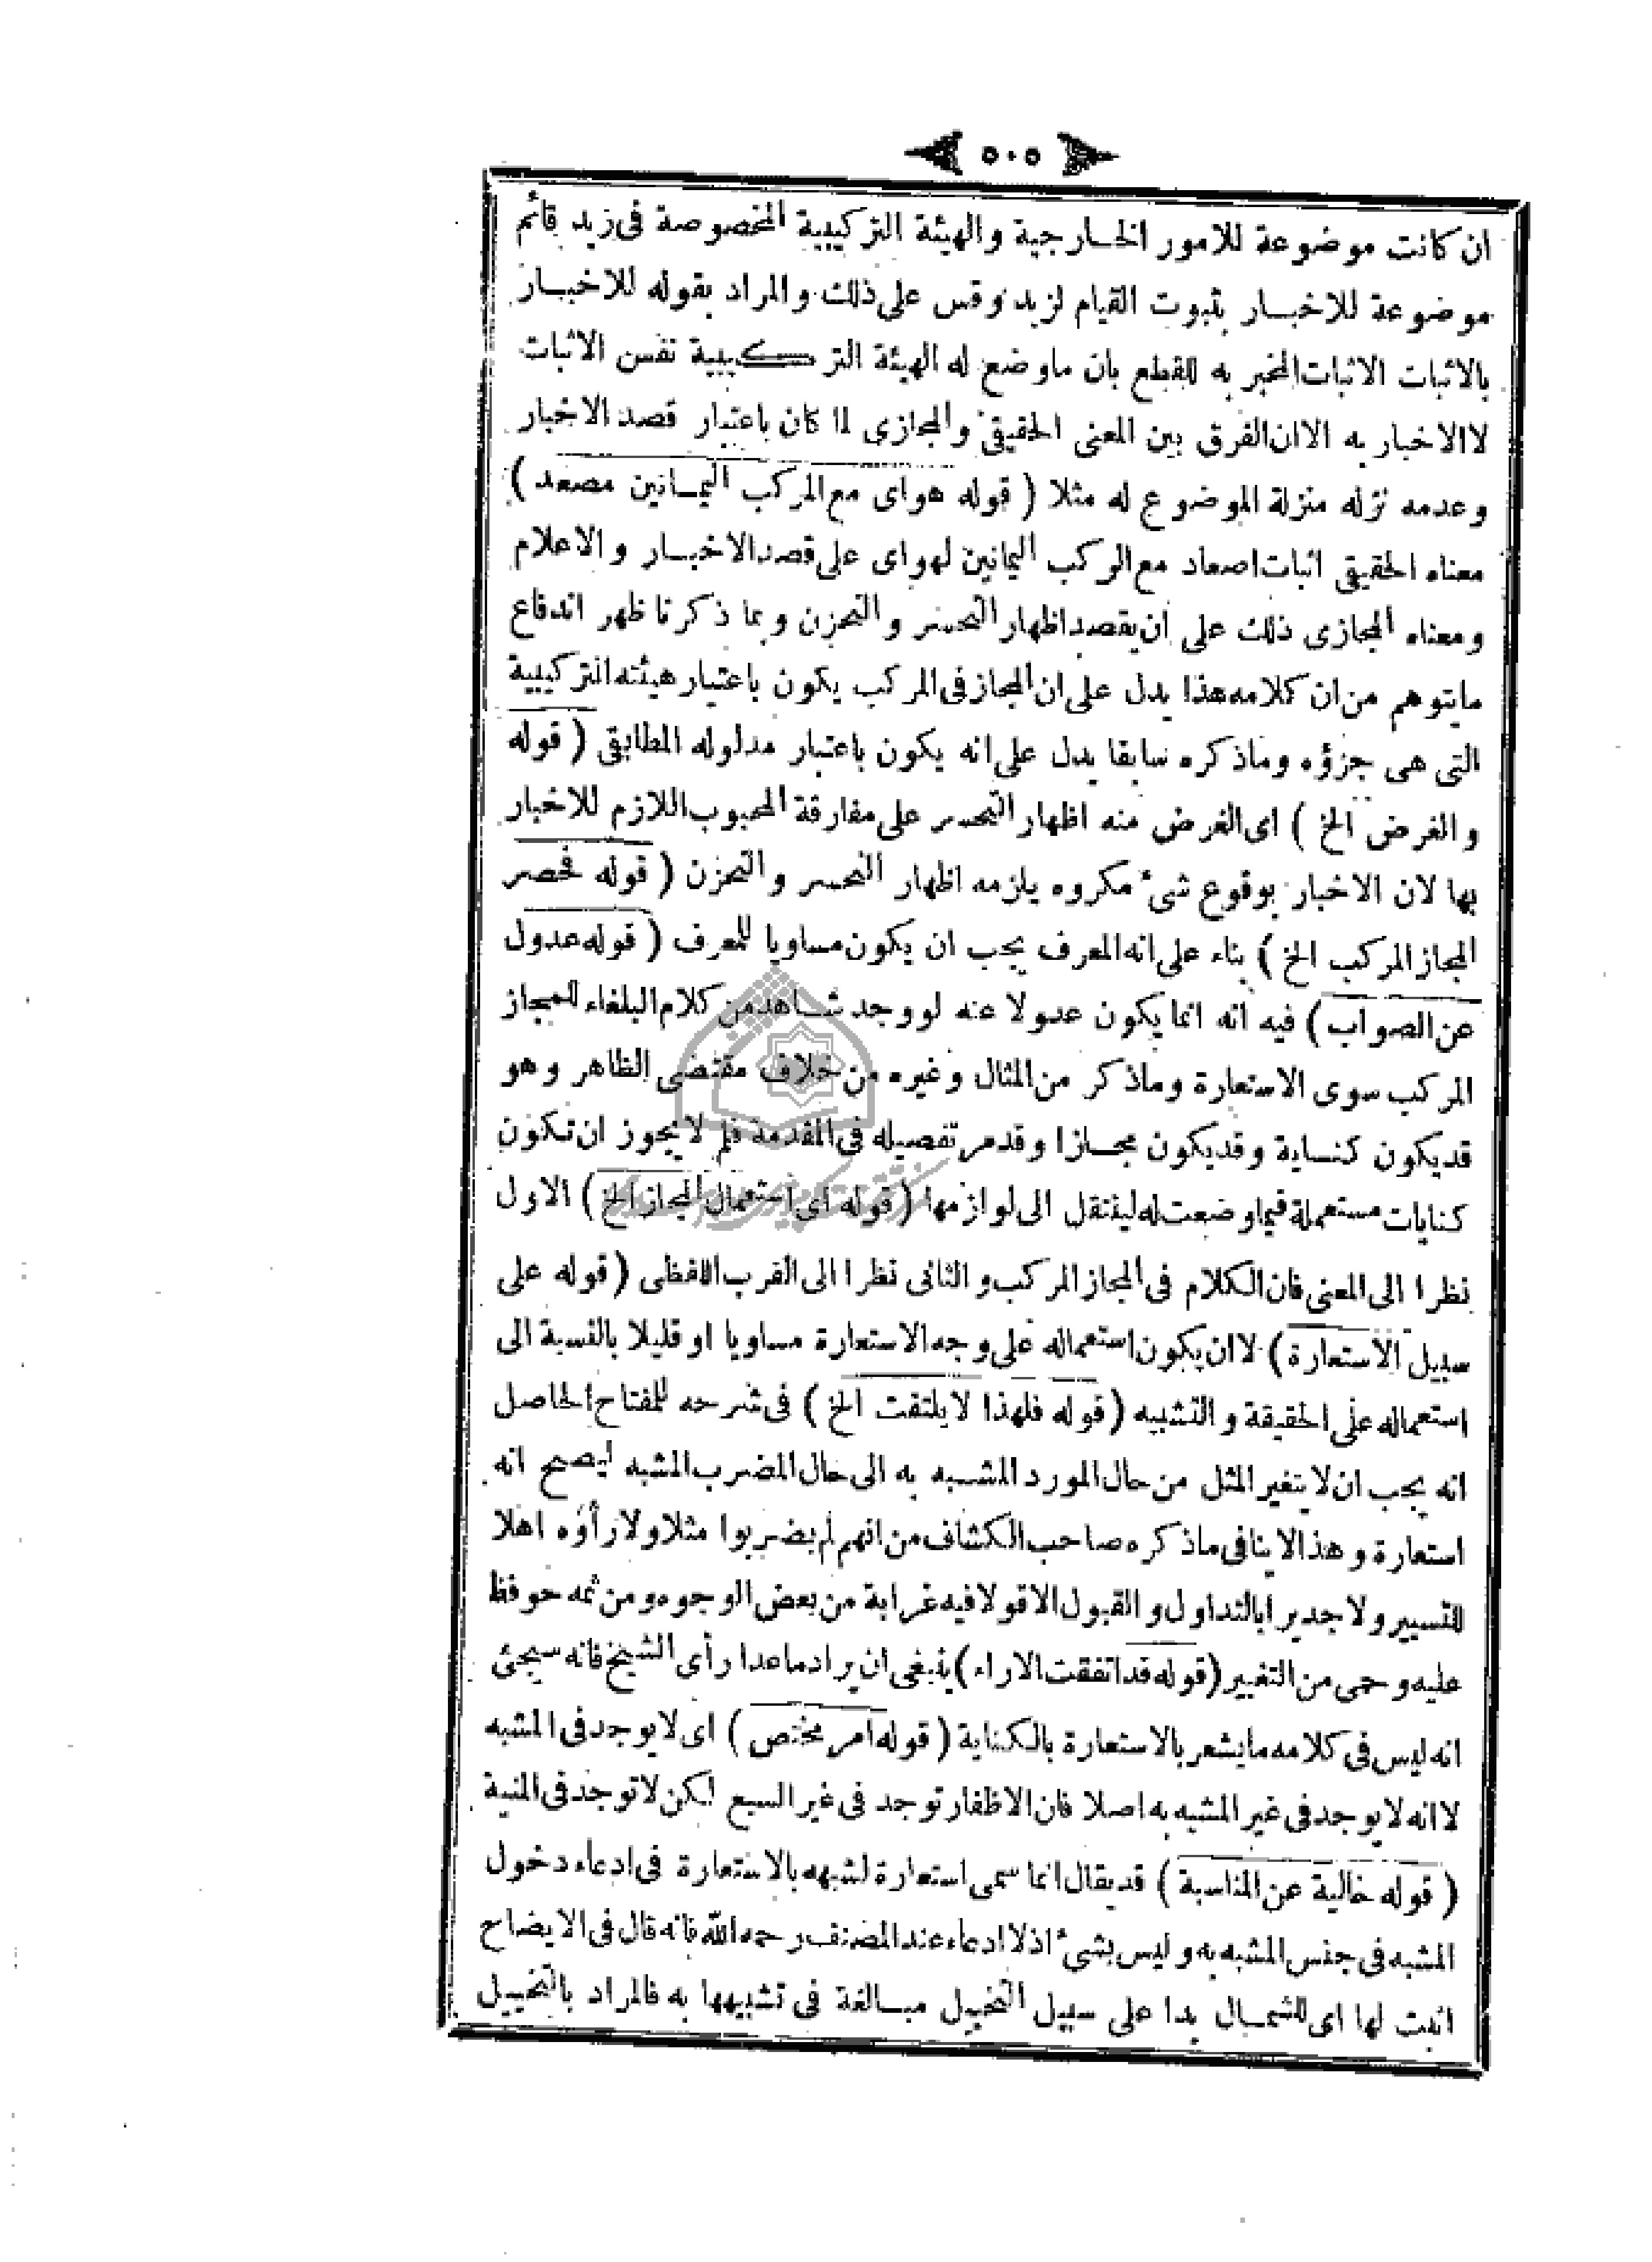 ٥٠٥
ان كانت موضوعة للامور الخارجية والهيئة التركيبية المخصوصة فى زيد قائم
موضوعة للاخبار بثبوت القيام لزيد وقس على ذلك والمراد بقوله للاخبار
بالاثبات الاثبات المخبر به للقطع بان ماوضع له الهيئة التركيبية نفس الاثبات
لا الاخبار به الا ان الفرق بين المعنى الحقيقى والمجازى لما كان باعتبار قصد الاخبار
وعدمه نزله منزلة الموضوع له مثلا ( قوله هواى مع الركب اليمانين مصعد )
معناه الحقيقى اثبات اصعاد مع الركب اليمانين لهواى على قصد الاخبار والاعلام
ومعناه المجازى ذلك على ان يقصد اظهار التحسر والتحزن وبما ذكرنا ظهر اندفاع
مايتوهم من ان كلامه هذا يدل على ان المجاز فى المركب يكون باعتبار هيئته التركيبية
التى هى جزؤه وماذكره سابقا يدل على انه يكون باعتبار مدلوله المطابقى ( قوله
والغرض الخ ) اى الغرض منه اظهار التحسر على مفارقة المحبوب اللازم للاخبار
بها لان الاخبار بوقوع شئ مكروه يلزمه اظهار التحسر والتحزن ( قوله فحصر
المجاز المركب الخ ) بناء على انه المعرف يجب ان يكون مساويا للمعرف ( قوله عدول
عن الصواب ) فيه انه انما يكون عدولا عنه لو وجد شاهد من كلام البلغاء للمجاز
المركب سوى الاستعارة وماذكر من المثال وغيره من خلاف مقتضى الظاهر وهو
قديكون كناية وقديكون مجازا وقدمر تفصيله فى المقدمة فلم لايجوز ان تكون
كنايات مستعملة فيما وضعت له لينتقل الى لوازمها ( قوله اى استعمال المجاز الخ ) الاول
نظرا الى المعنى فان الكلام فى المجاز المركب والثانى نظرا الى القرب اللفظى ( قوله على
سبيل الاستعارة ) لا ان يكون استعماله على وجه الاستعارة مساويا او قليلا بالنسبة الى
استعماله على الحقيقة والتشبيه ( قوله فلهذا لايلتفت الخ ) فى شرحه للمفتاح الحاصل
انه يجب ان لايتغير المثل من حال المورد المشبه به الى حال المضرب المشبه ليصح انه
استعارة وهذا لاينافى ماذكره صاحب الكشاف من انهم لم يضربوا مثلا ولا رأوه اهلا
للتسيير ولا جديرا بالتداول والقبول الا قولا فيه غرابة من بعض الوجوه ومن ثمه حوفظ
عليه وحمى من التغيير ( قوله قد اتفقت الاراء ) ينبغى ان يراد ماعدا رأى الشيخ فانه سيجئ
انه ليس فى كلامه مايشعر بالاستعارة بالكناية ( قوله امر مختص ) اى لايوجد فى المشبه
لا انه لايوجد فى غير المشبه به اصلا فان الاظفار توجد فى غير السبع لكن لاتوجد فى المنية
( قوله خالية عن المناسبة ) قديقال انما سمى استعارة لشبهه بالاستعارة فى ادعاء دخول
المشبه فى جنس المشبه به وليس بشئ اذ لا ادعاء عند المصنف رحمه الله فانه قال فى الايضاح
اثبت لها اى للشمال يدا على سبيل التخييل مبالغة فى تشبيهها به فالمراد بالتخييل